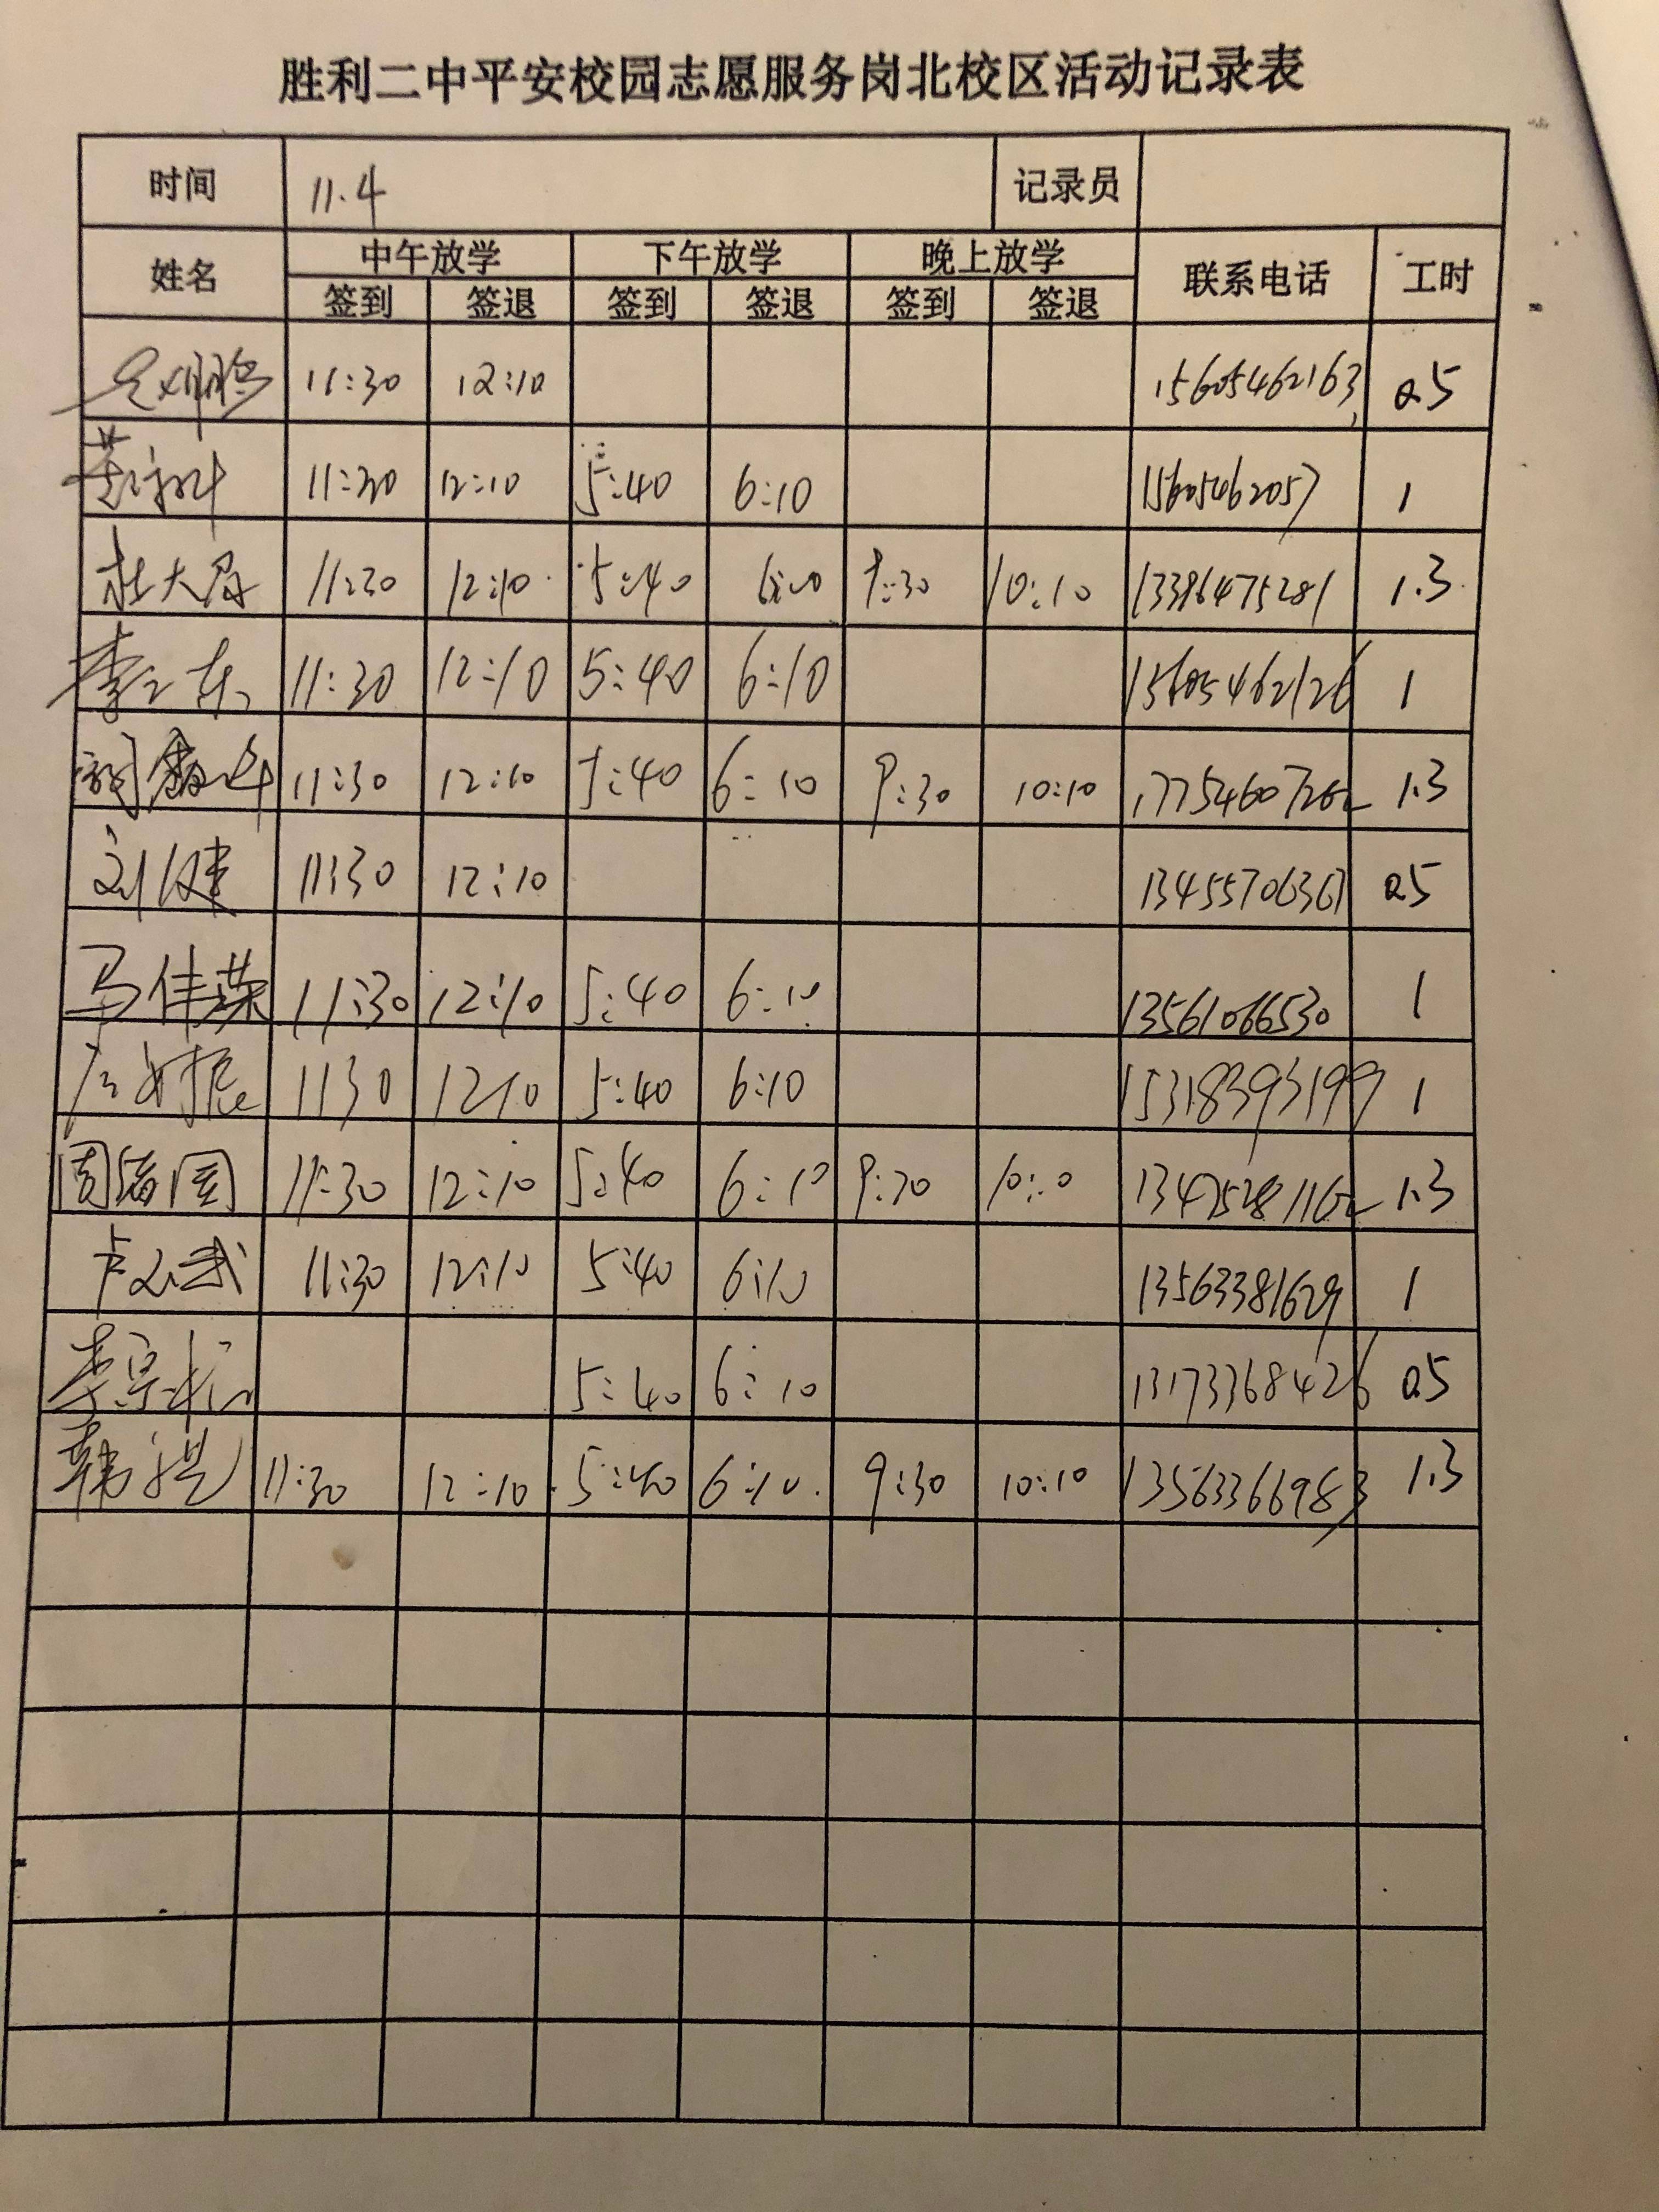 胜利二中平安校园志愿服务岗北校区活动记录表
时间 11.4 记录员
姓名 中午放学 下午放学 晚上放学 联系电话 工时
签到 签退 签到 签退 签到 签退
11:30 12:10 15605462163 0.5
11:30 12:10 5:40 6:10 15605462057 1
杜大 11:30 12:10 5:40 9:30 10:10 1.3
李 11:30 12:10 5:40 6:10 15605462126 1
11:30 12:10 5:40 6:10 9:30 10:10 1.3
刘健 11:30 12:10 13455706367 0.5
马佳荣 11:30 12:10 5:40 6:10 13561066530 1
1130 1210 5:40 6:10 15318393199 1
周 国 11:30 12:10 5:40 6:10 9:30 1.3
卢 武 11:30 12:10 5:40 6:10 13563381629 1
李 5:40 6:10 13173368426 0.5
韩 11:30 12:10 5:40 6:10 9:30 10:10 13563366983 1.3